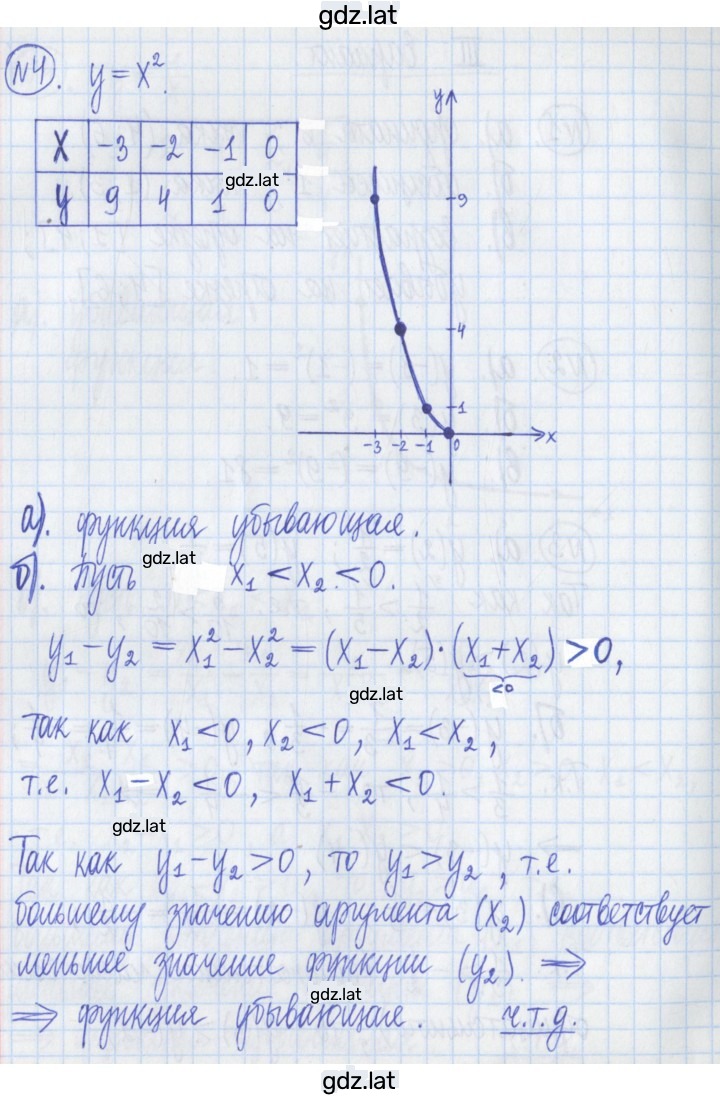 gdz.lat
№4. y = x².
x -3 -2 -1 0
y 9 4 1 0
gdz.lat
y
9
4
1
-3 -2 -1 0 x
а). функция убывающая.
gdz.lat
б). Пусть x₁ < x₂ < 0.
y₁ - y₂ = x₁² - x₂² = (x₁ - x₂)·(x₁ + x₂) > 0,
<0
gdz.lat
так как x₁ < 0, x₂ < 0, x₁ < x₂,
т.е. x₁ - x₂ < 0, x₁ + x₂ < 0.
gdz.lat
Так как y₁ - y₂ > 0, то y₁ > y₂, т.е.
большему значению аргумента (x₂) соответствует
меньшее значение функции (y₂). ⟹
gdz.lat
⟹ функция убывающая. ч.т.д.
gdz.lat